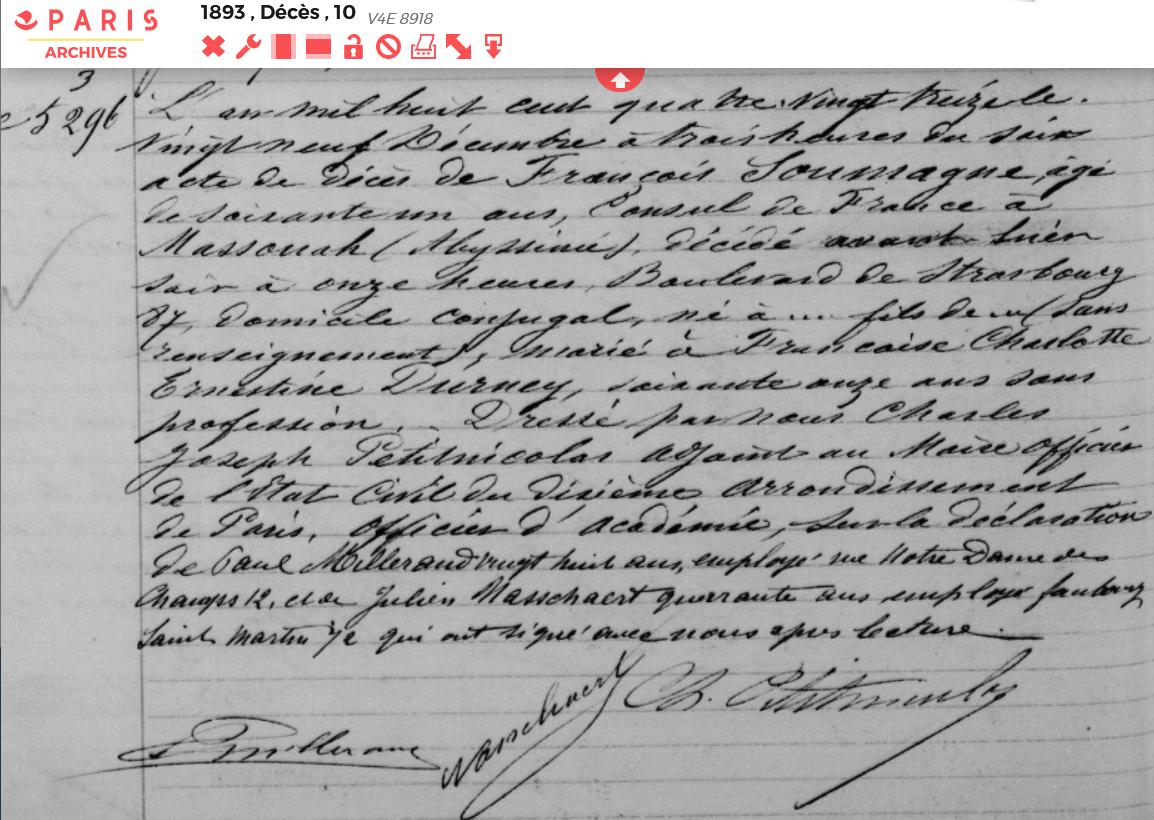 PARIS
ARCHIVES
1893 , Décès , 10 V4E 8918
3
5296
L'an mil huit cent quatre vingt treize le
vingt neuf Décembre à trois heures du soir
acte de décès de François Soumagne, âgé
de soixante un ans, Consul de France à
Massouah (Abyssinie), décédé avant-hier
soir à onze heures, Boulevard de Strasbourg
87, domicile conjugal, né à ... fils de ... (sans
renseignement), marié à Francoise Charlotte
Ernestine Durney, soixante onze ans sans
profession. Dressé par nous Charles
Joseph Petitnicolas adjoint au Maire officier
de l'Etat Civil du dixième arrondissement
de Paris, officier d'académie, sur la déclaration
de Paul Millerand vingt huit ans, employé rue Notre Dame des
Champs 12, et de Julien Nasschaert quarante ans employé faubourg
Saint Martin qui ont signé avec nous après lecture.
Ch. Petitnicolas
Nasschaert
P Millerand